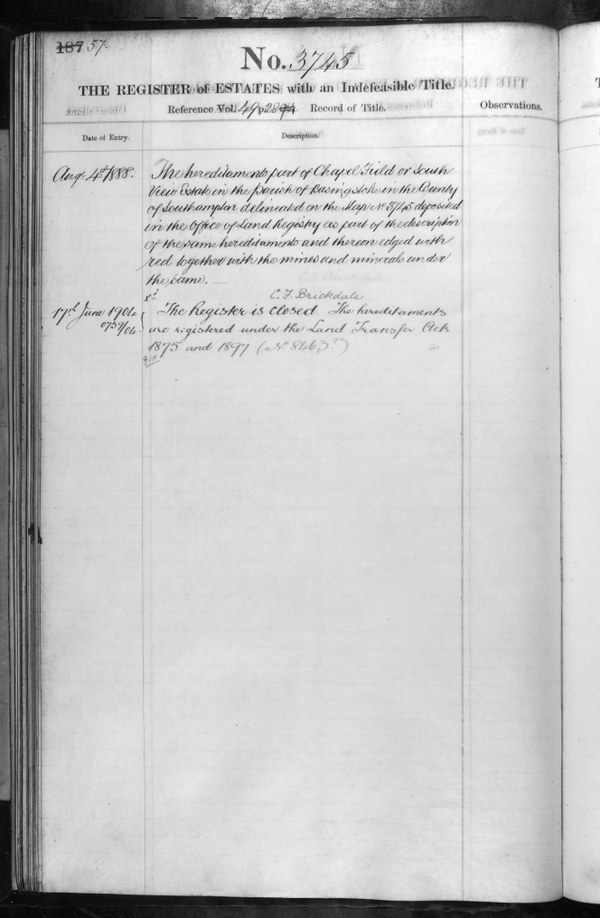 187 57.
No. 3745
THE REGISTER of ESTATES with an Indefeasible Title.
Reference Vol. 49 p. 284 Record of Title.
Observations.
Date of Entry.
Description.
Augt 4th 1888.
The hereditaments part of Chapel Field or South
View Estate in the Parish of Basingstoke in the County
of Southampton delineated on the Map No 3745 deposited
in the Office of Land Registry as part of the description
of the same hereditaments and thereon edged with
red together with the mines and minerals under
the same.
C. F. Brickdale
17th June 1904
The Register is closed. The hereditaments
are registered under the Land Transfer Acts
1875 and 1897